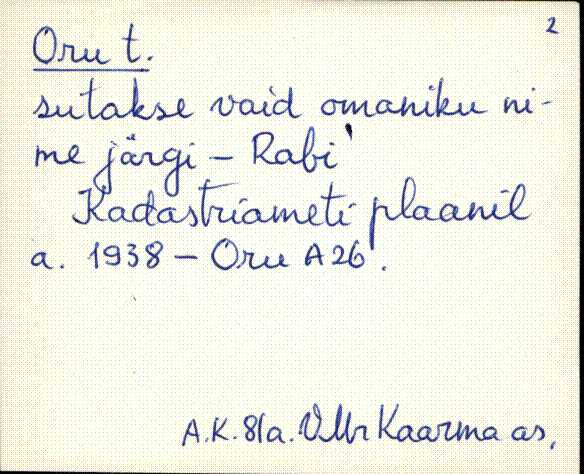 2
Oru t.
sutakse vaid omaniku ni-
me järgi – Rabi'
Kadastriameti plaanil
a. 1938 – Oru A26.
A.K. 8/a. Kaarma as,